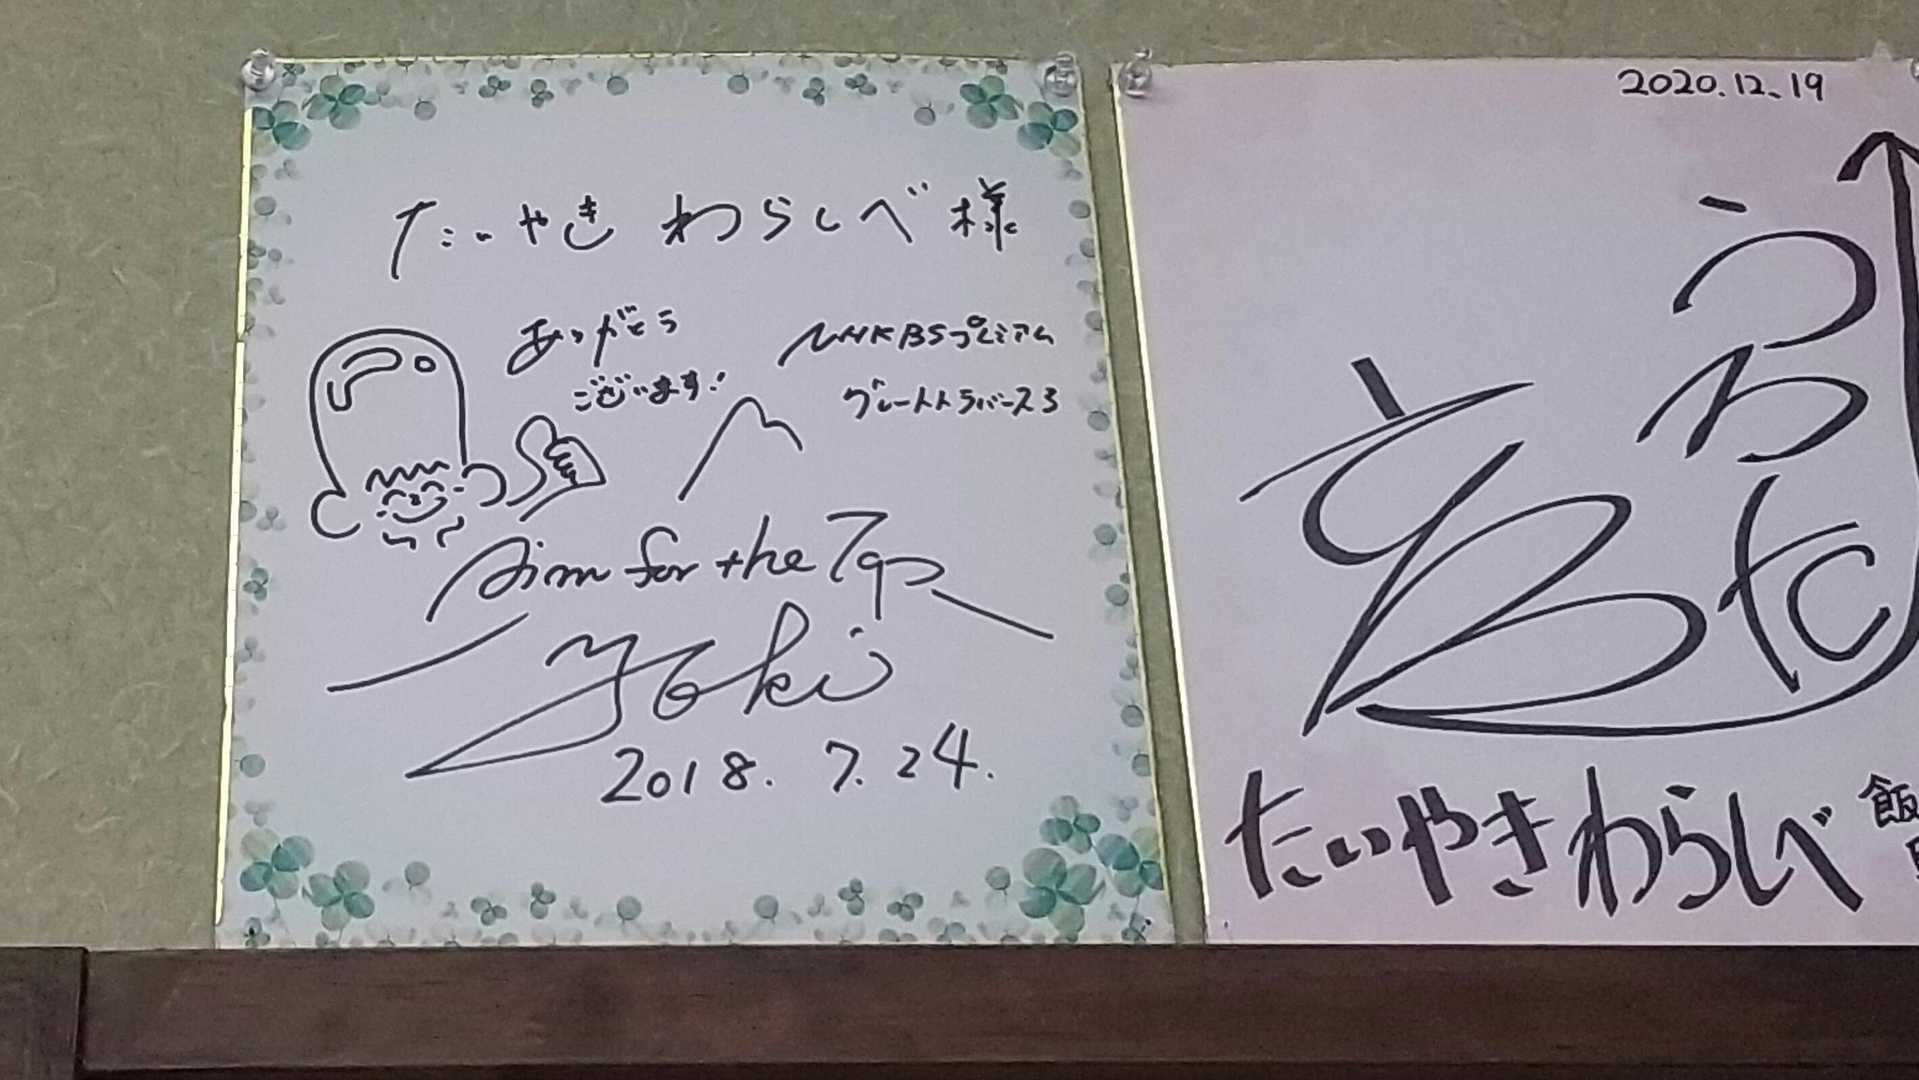 たいやき わらしべ様
ありがとう
ございます!
NHK BSプレミアム
グレートトラバース3
Aim for the Top
Yoki
2018. 7. 24.
2020.12.19
たいやきわらしべ 飯